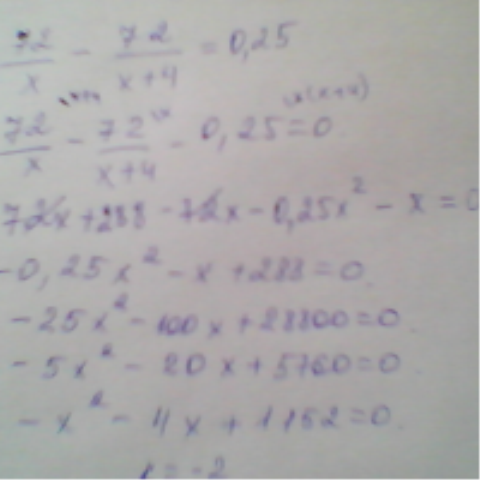 72/x - 72/x+4 = 0,25
72/x - 72/x+4 - 0,25=0 x(x+4)
72x+288-72x-0,25x² - x=0
-0,25x² - x +288=0
-25x² - 100x+28800=0
-5x² - 20x+5760=0
-x² - 4x+1152=0